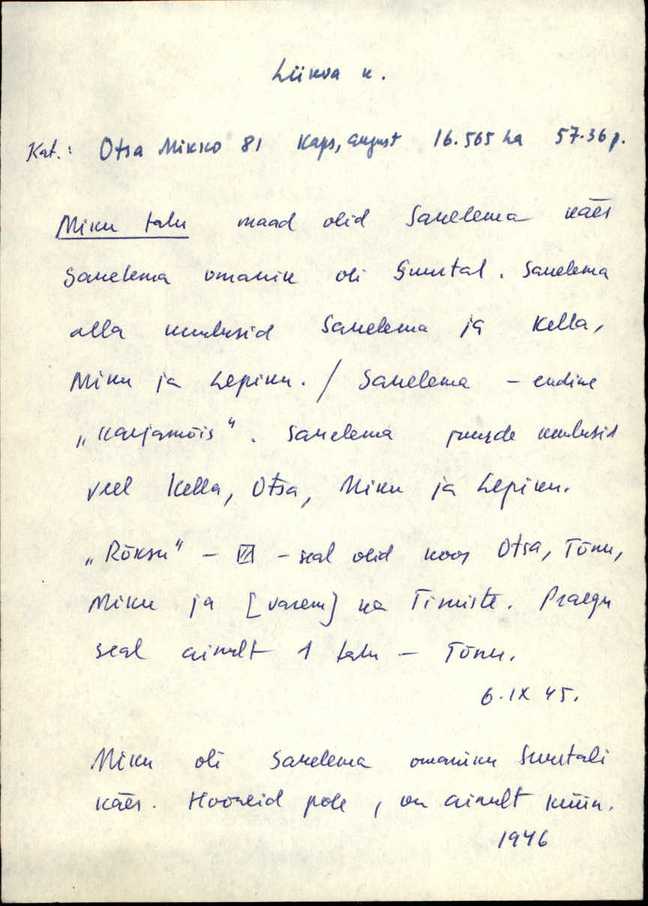 Liikva k.
Kat.: Otsa Mikko 81 Kaps, August 16.565 ha 57.36 p.
Miku talu maad olid Sauelema käes
Sauelema omanik oli Suurtal. Sauelema
alla kuulusid Sauelema ja Kella,
Miku ja Lepiku. / Sauelema – endine
„karjamõis“. Sauelema juurde kuulusid
veel Kella, Otsa, Miku ja Lepiku.
„Rõksu“ – VI – seal olid koos Otsa, Tõnu,
Miku ja [varem] ka Timiste. Praegu
seal ainult 1 talu – Tõnu.
6.IX 45.
Miku oli Sauelema omaniku Suurtali
käes. Hooneid pole, on ainult küün.
1946